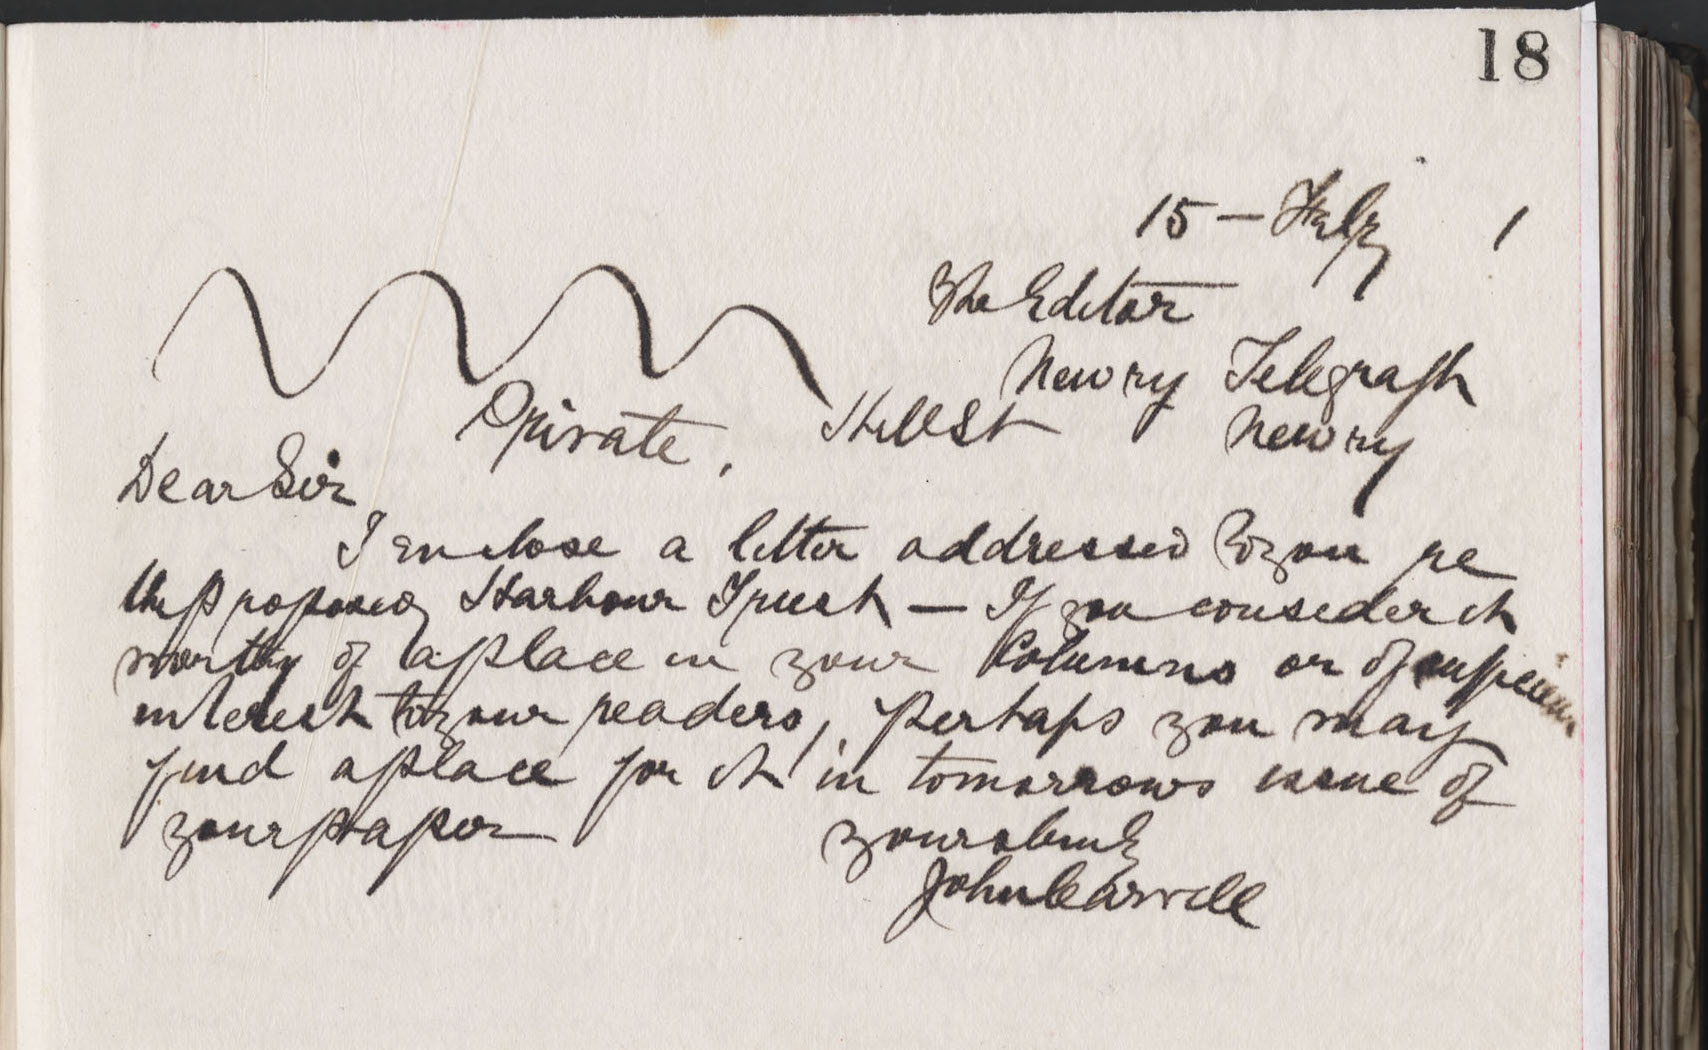 18
15 - Feby 1
The Editor
Newry Telegraph
Private, Hill St Newry
Dear Sir
I enclose a letter addressed to you re
the proposed Harbour Trust — If you consider it
worthy of a place in your Columns or of sufficient
interest to your readers, perhaps you may
find a place for it in tomorrows issue of
your paper
yours
John Carvill